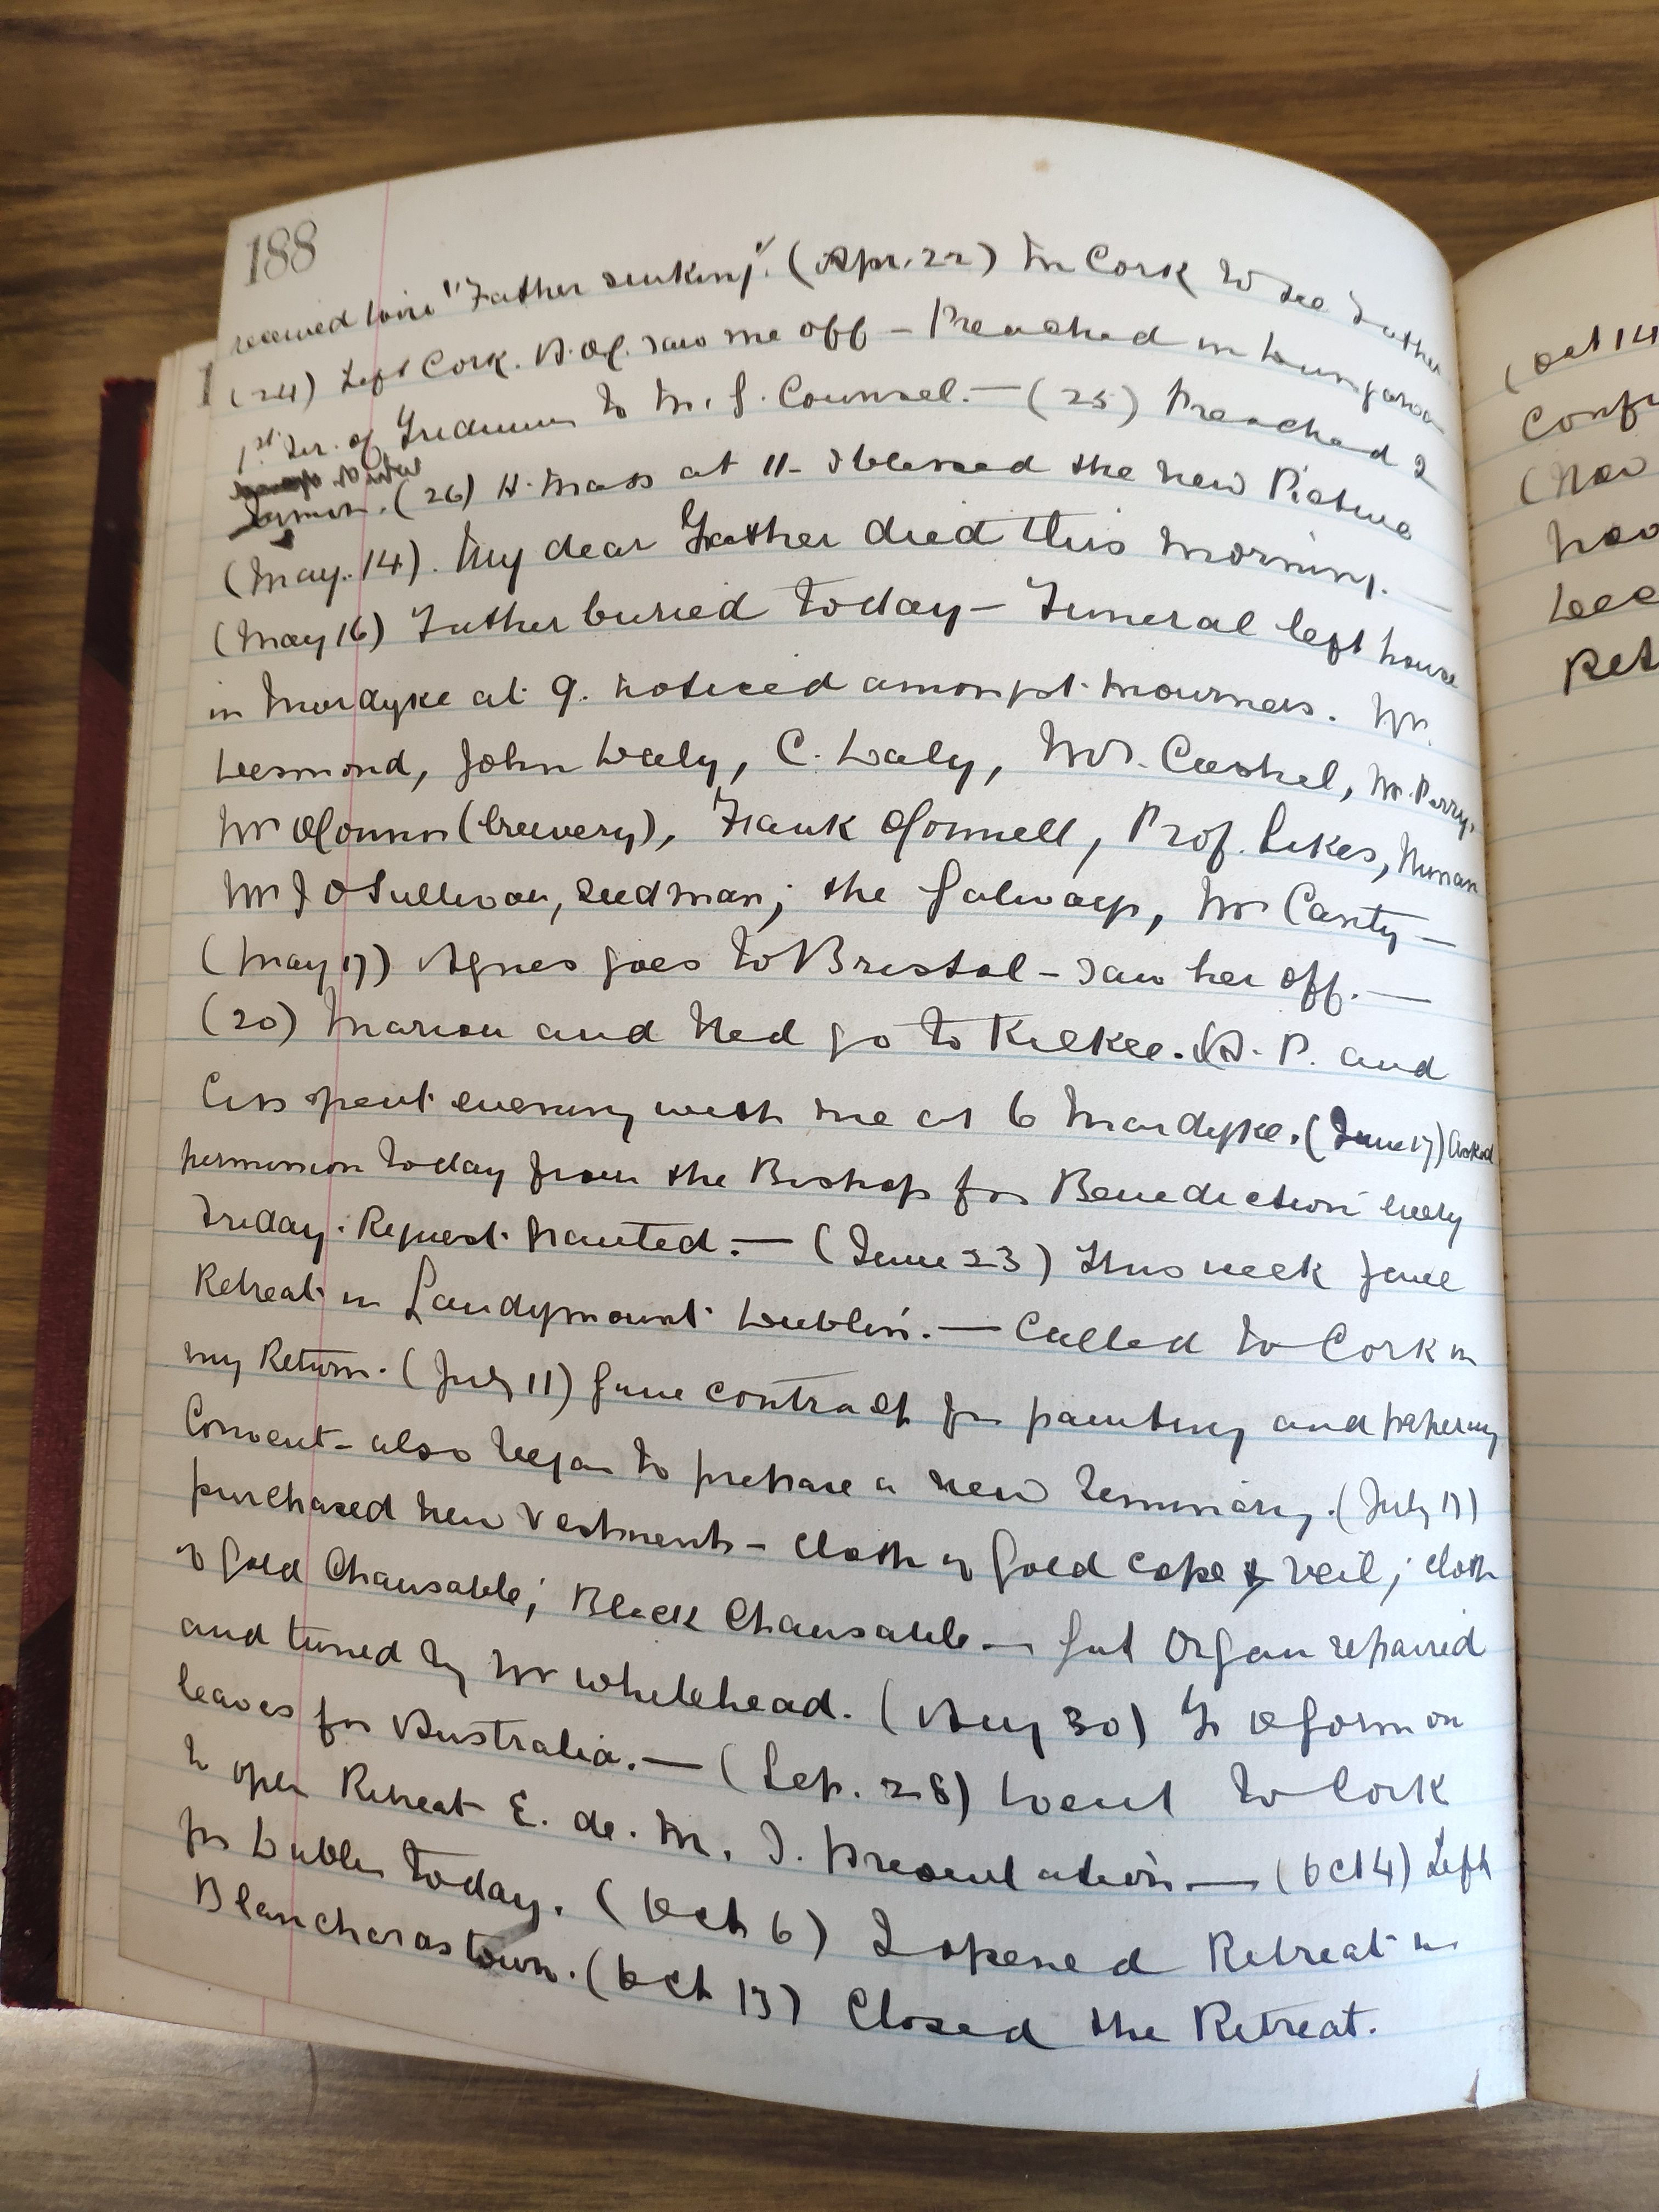 188
received wire "Father sinking". (Apr. 22) In Cork to see Father
(24) Left Cork. saw me off – Preached in Dungarvan
1st Ser. of Triduum to M. G. Counsel. — (25) Preached 2
sermon. (26) H. Mass at 11 – I blessed the new Picture
(May. 14). My dear Father died this morning. —
(May 16) Father buried today – Funeral left house
in Mardyke at 9. Noticed amongst mourners. Mr.
Desmond, John Daly, C. Daly, Mr. Cashel, Mr. Perry,
Mr OConnor (brewery), Frank OConnell, Prof. Sikes,
Mr J OSullivan, seedman; the Galways, Mr Canty —
(May 17) Agnes goes to Bristol – saw her off. —
(20) Marion and Ned go to Kilkee. A. P. and
Ciss spent evening with me at 6 Mardyke. (June 17) Asked
permission today from the Bishop for Benediction every
Friday. Request granted. — (June 23) This week gave
Retreat in Sandymount Dublin. — Called to Cork in
my Return. (July 11) Gave contract for painting and papering
Convent – also began to prepare a new Seminary. (July 17)
purchased new Vestments – cloth of Gold cope & veil; cloth
of Gold Chausable; Black Chausable — Got Organ repaired
and tuned by Mr Whitehead. (Aug 30) Fr OGorman
leaves for Australia. — (Sep. 28) Went to Cork
to open Retreat E. de. M. S. Presentation — (Oct 4) Left
for Dublin today. (Oct 6) I opened Retreat in
Blanchardstown. (Oct 13) Closed the Retreat.
(Oct 14
(Nov
Ret